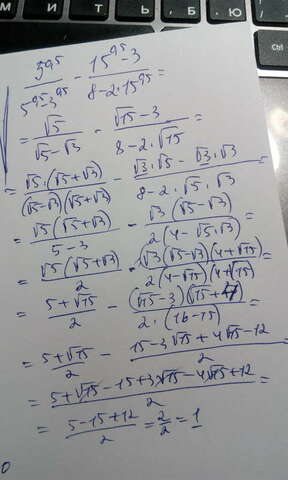 5^0,5 / (5^0,5 - 3^0,5) - (15^0,5 - 3) / (8 - 2·15^0,5) =
= √5 / (√5 - √3) - (√15 - 3) / (8 - 2·√15) =
= √5·(√5 + √3) / ((√5 - √3)(√5 + √3)) - (√3·√5 - √3·√3) / (8 - 2·√5·√3) =
= √5(√5 + √3) / (5 - 3) - √3(√5 - √3) / (2(4 - √5·√3)) =
= √5(√5 + √3) / 2 - (√3(√5 - √3)(4 + √15)) / (2(4 - √15)(4 + √15)) =
= (5 + √15) / 2 - ((√15 - 3)(√15 + 4)) / (2·(16 - 15)) =
= (5 + √15) / 2 - (15 - 3√15 + 4√15 - 12) / 2 =
= (5 + √15 - 15 + 3√15 - 4√15 + 12) / 2 =
= (5 - 15 + 12) / 2 = 2/2 = 1